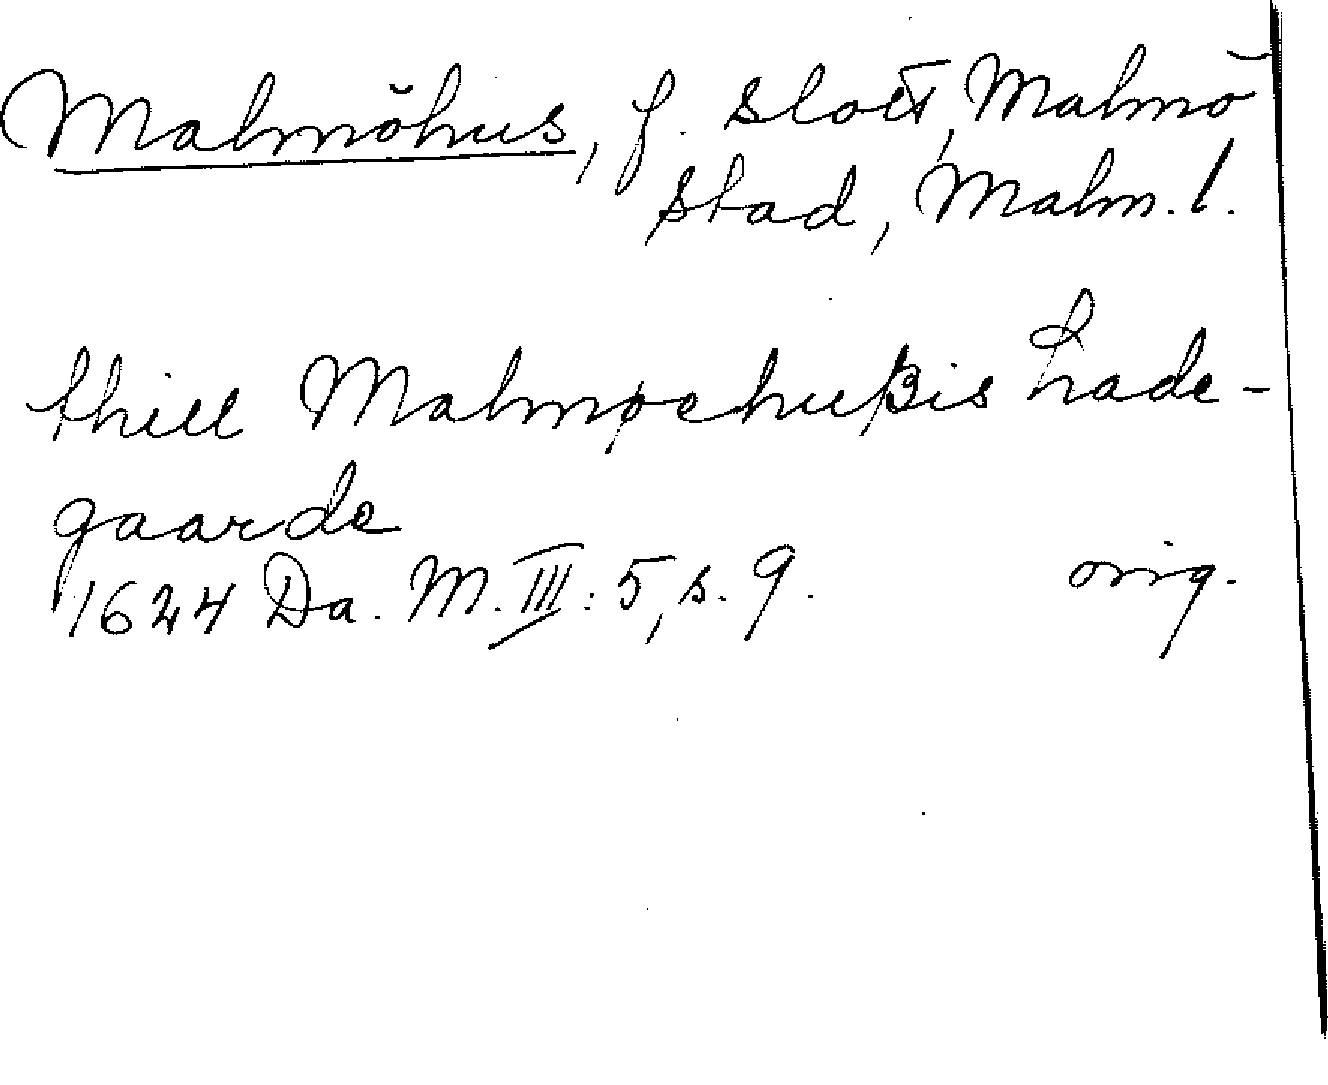 Malmöhus, f. slott, Malmö
stad, Malm. l.
thill Malmøehußis Lade-
gaarde
1624 Da. M. III: 5, s. 9. orig.